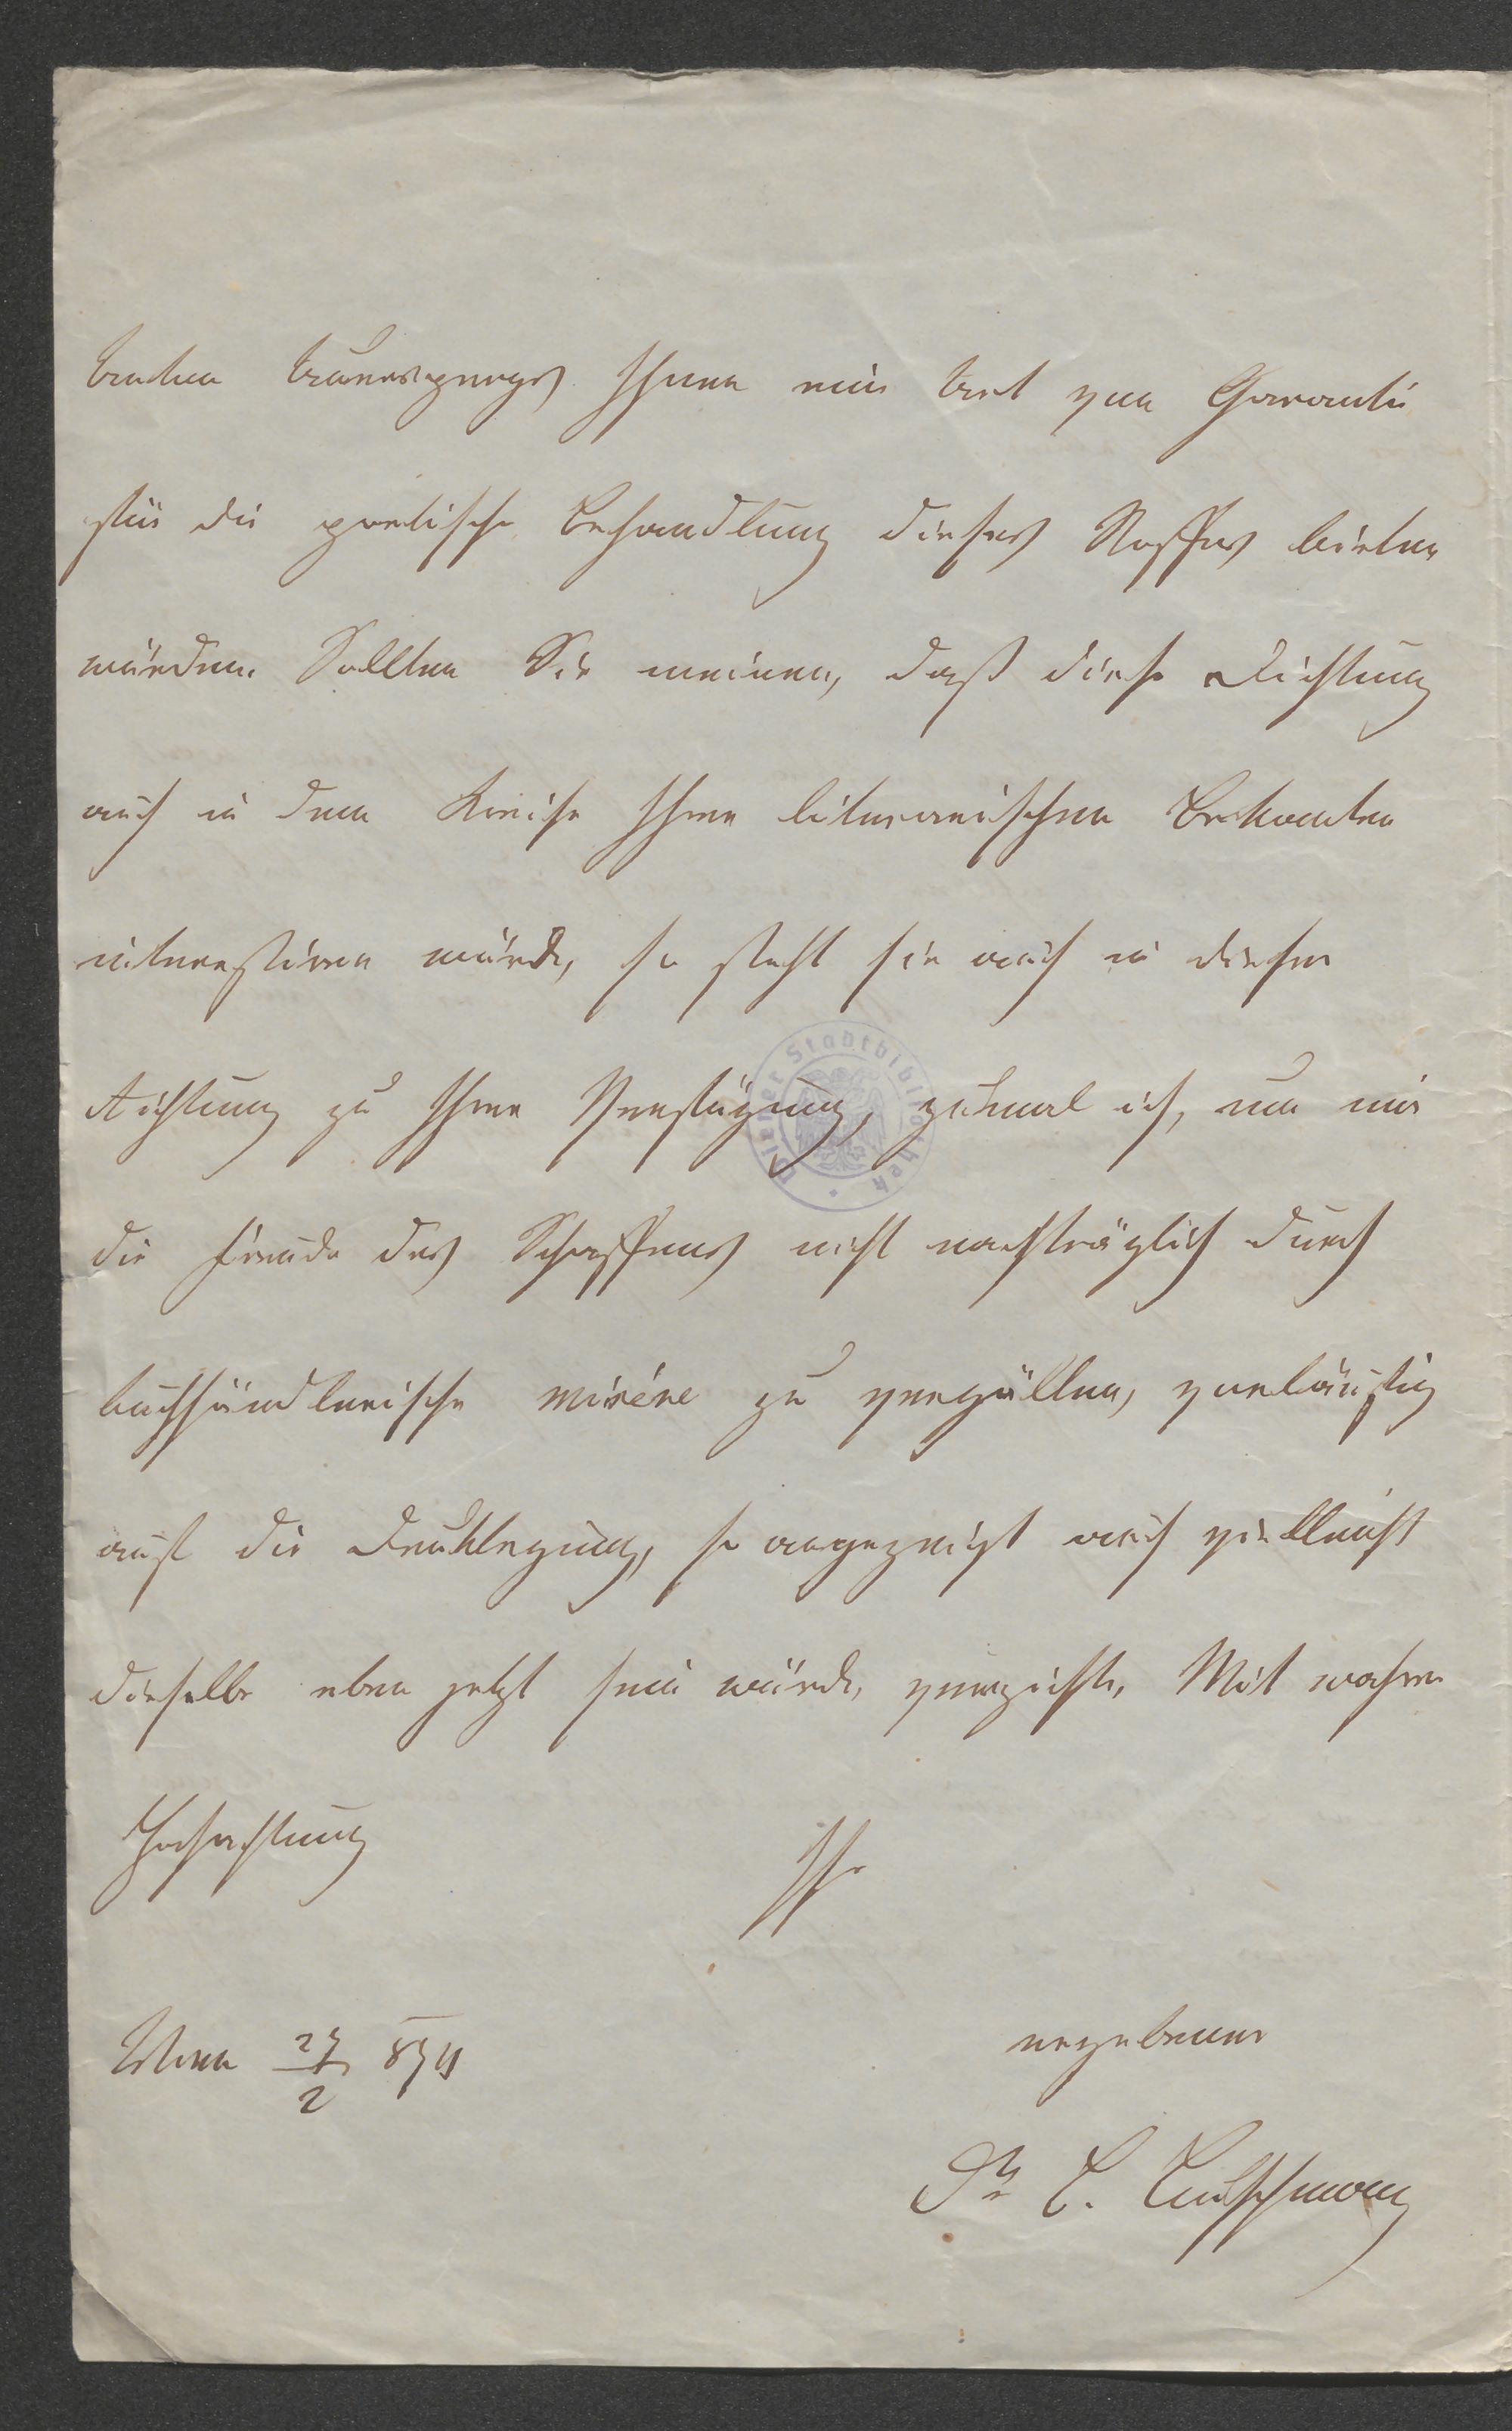 Ihnen eine Art von Garantie
für die poetische Behandlung dieses Stoffes bieten
würden. Sollten Sie meinen, daß diese Dichtung
auch in dem Kreise Ihrer literarischen Bekannten
interessiren würde, so steht sie auch in dieser
Richtung zu Ihrer Verfügung, zumal ich, um mir
die Freude des Schaffens nicht nachträglich durch
buchhändlerische misére zu vergällen, vorläufig
auf die Drucklegung, so angezeigt auch vielleicht
dieselbe eben jetzt sein würde, verzichte. Mit wahrer
Hochachtung
Ihr
Wien 27/2 871
ergebener
Dr
Wiener Stadtbibliothek